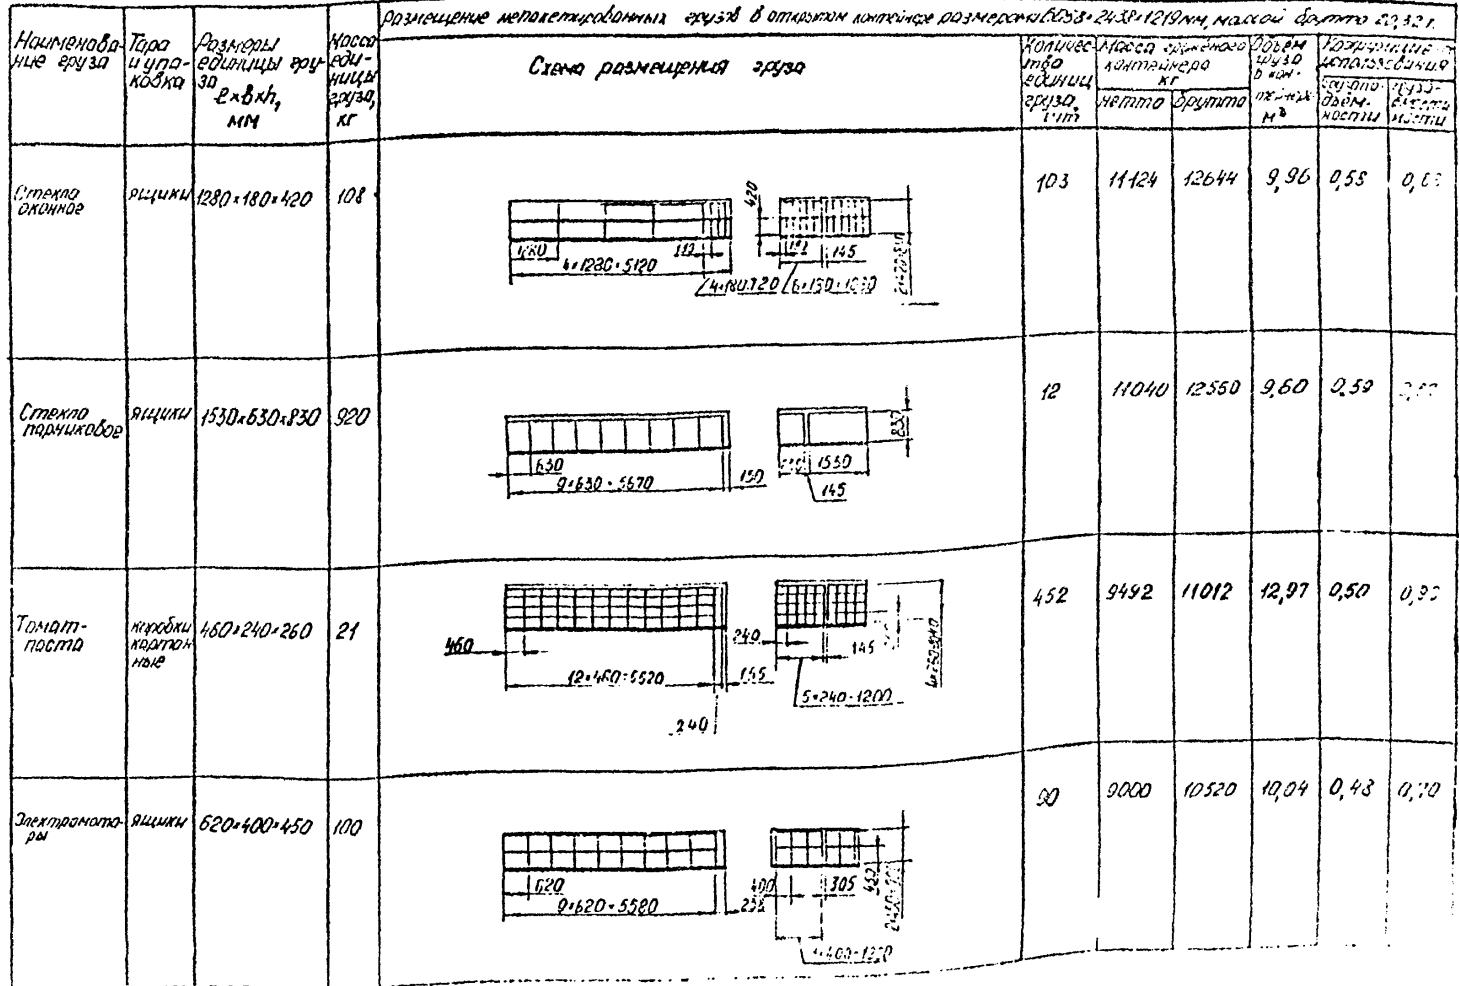 Размещение непакетированных грузов в открытом контейнере размерами 6058×2438×1219мм, массой брутто 20,32 т.
Наименова-
ние груза
Тара
и упа-
ковка
Размеры
единицы гру-
за
l×b×h,
мм
Масса
еди-
ницы
груза,
кг
Схема размещения груза
Количес-
тво
единиц
груза,
шт
Масса груженого
контейнера
кг
нетто
брутто
Объем
груза
в кон-
тейнере
м³
использования
грузопо-
дъем-
ности
Стекло
оконное
ящики
1280×180×420
108
420
180
4×1280=5120
4×180=720
145
103
11124
12644
9,96
0,55
Стекло
парниковое
ящики
1530×630×830
920
630
9×630=5670
150
1530
145
830
12
11040
12560
9,60
0,59
Томат-
паста
коробки
картон
ные
460×240×260
21
460
12×460=5520
145
240
240
145
5×240=1200
452
9492
11012
12,97
0,50
0,90
Электромото-
ры
ящики
620×400×450
100
620
9×620=5580
238
400
305
450
90
9000
10520
10,04
0,48
0,70